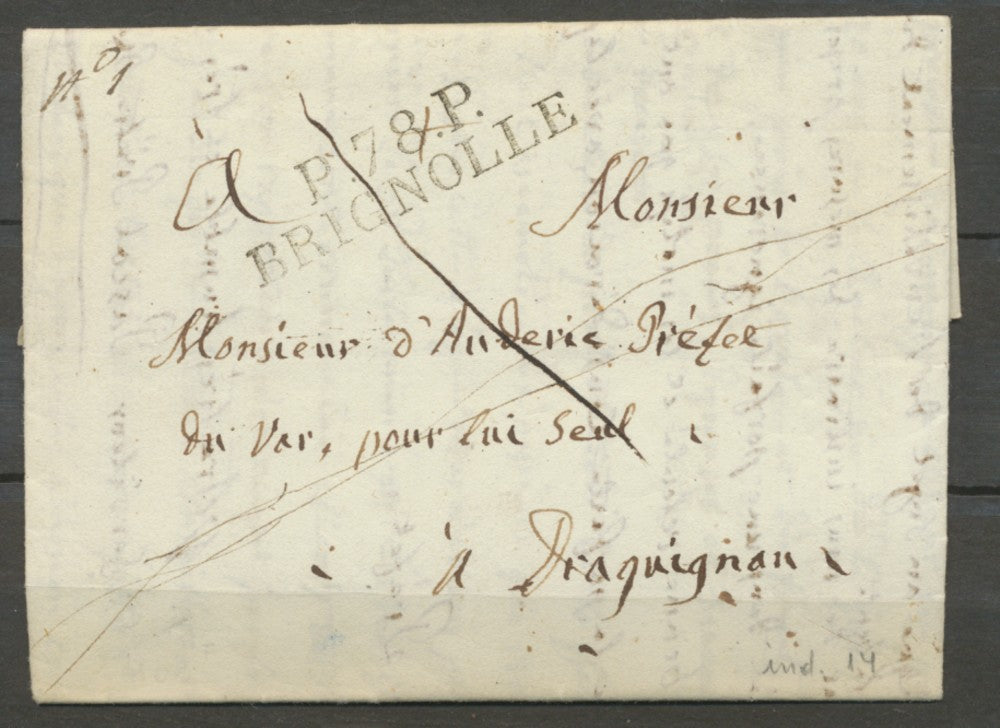 N° 1
P.78.P.
BRIGNOLLE
A Monsieur
Monsieur d'Auderic Préfet
du Var, pour lui Seul
A Draguignan
ind. 14